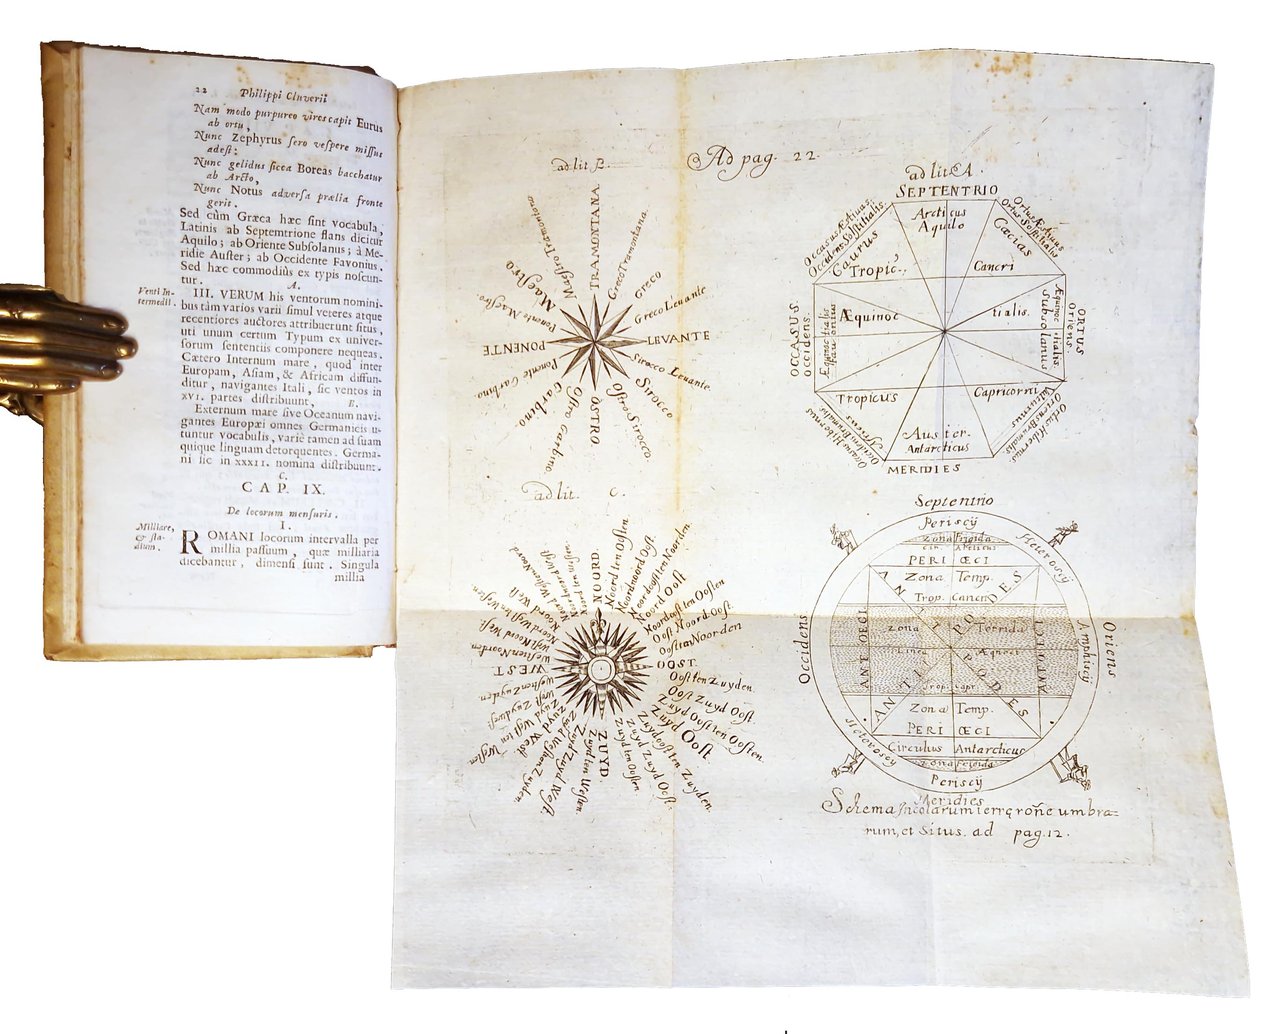 22 Philippi Cluverii
Nam modo purpureo vires capit Eurus
ab ortu,
Nunc Zephyrus sero vespere missus
adest:
Nunc gelidus sicca Boreas bacchatur
ab Arcto,
Nunc Notus adversa prælia fronte
gerit.
Sed cùm Græca hæc sint vocabula,
Latinis ab Septemtrione flans dicitur
Aquilo; ab Oriente Subsolanus; à Me-
ridie Auster; ab Occidente Favonius.
Sed hæc commodiùs ex typis noscun-
tur.
A.
Venti In-
termedii.
III. VERUM his ventorum nomini-
bus tàm varios varii simul veteres atque
recentiores auctores attribuerunt situs,
uti unum certum Typum ex univer-
sorum sententiis componere nequeas.
Cætero Internum mare, quod inter
Europam, Asiam, & Africam diffun-
ditur, navigantes Itali, sic ventos in
XVI. partes distribuunt,
B.
Externum mare sive Oceanum navi-
gantes Europæi omnes Germanicis u-
tuntur vocabulis, variè tamen ad suam
quique linguam detorquentes. Germa-
ni sic in XXXII. nomina distribuunt.
C.
CAP. IX.
De locorum mensuris.
I.
Milliare,
& sta-
dium.
ROMANI locorum intervalla per
millia passuum, quæ milliaria
dicebantur, dimensi sunt. Singula
millia
Ad pag. 22.
ad lit B.
TRAMONTANA.
Greco Tramontana.
Greco
Greco Levante
LEVANTE
Siroco Levante.
Sirocco
Ostro Sirocco.
OSTRO
Ostro Garbino
Garbino.
Ponente Garbino.
PONENTE
Ponente Maestro
Maestro
Maestro Tramontana
ad lit A.
SEPTENTRIO
Arcticus
Aquilo
Ortus Æstivus
Ortus Solstitialis
Cæcias
Cancri
ORTUS
Oriens.
Æquinoctialis.
Subsolanus
tialis.
Capricorni
Ortus Hibernus
Oriens Brumalis
Vulturnus
Auster.
Antarcticus
MERIDIES
Occidens Brumalis
Tropicus
OCCASUS
Occidens.
Æquinoctialis
Favonius
Æquinoc
Occasus Æstivus.
Occidens Solstitialis.
Caurus
Tropic.
ad lit. C.
NOORD.
Noord ten Oosten
Noordnoord Oost.
Noordoosten Noorden
Noord Oost
Noordoost ten Oosten
Oost Noord Oost.
Oosten Noorden
OOST.
Oosten Zuyden.
Oost Zuyd Oost.
Zuyd Oosten Oosten
Zuyd Oost
Zuydoosten Zuyden.
Zuyd Zuyd Oost.
Zuyd ten Oosten
ZUYD
Zuyd ten Westen.
Zuyd Zuyd West.
Zuyd Westen Zuyden.
Zuyd West.
Zuyd Westen Westen
West Zuydwest.
Westen Zuyden.
WEST
Westen Noorden
West Noord West.
Noord West
Septentrio
Periscij
Heteroscy
Zona Frigida
PERI ŒCI
Zona Temp.
Trop. Cancri
ANTIPODES
Zona Torrida
ANTŒCI
ANTŒCI
Linea Æquoct
ANTIPODES
Trop. Capr.
Zona Temp.
PERI ŒCI
Circulus Antarcticus
Zona Frigida
Periscij
Heteroscy
Occidens
Amphiscij
Oriens
Meridies
Schema Incolarum terrę rõne umbra=
rum, et Situs. ad pag. 12.